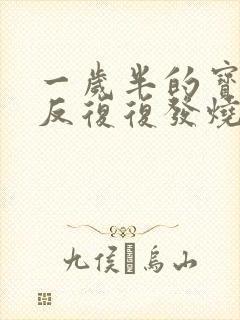 一歲半的寶
反復復發燒
九侯 烏山